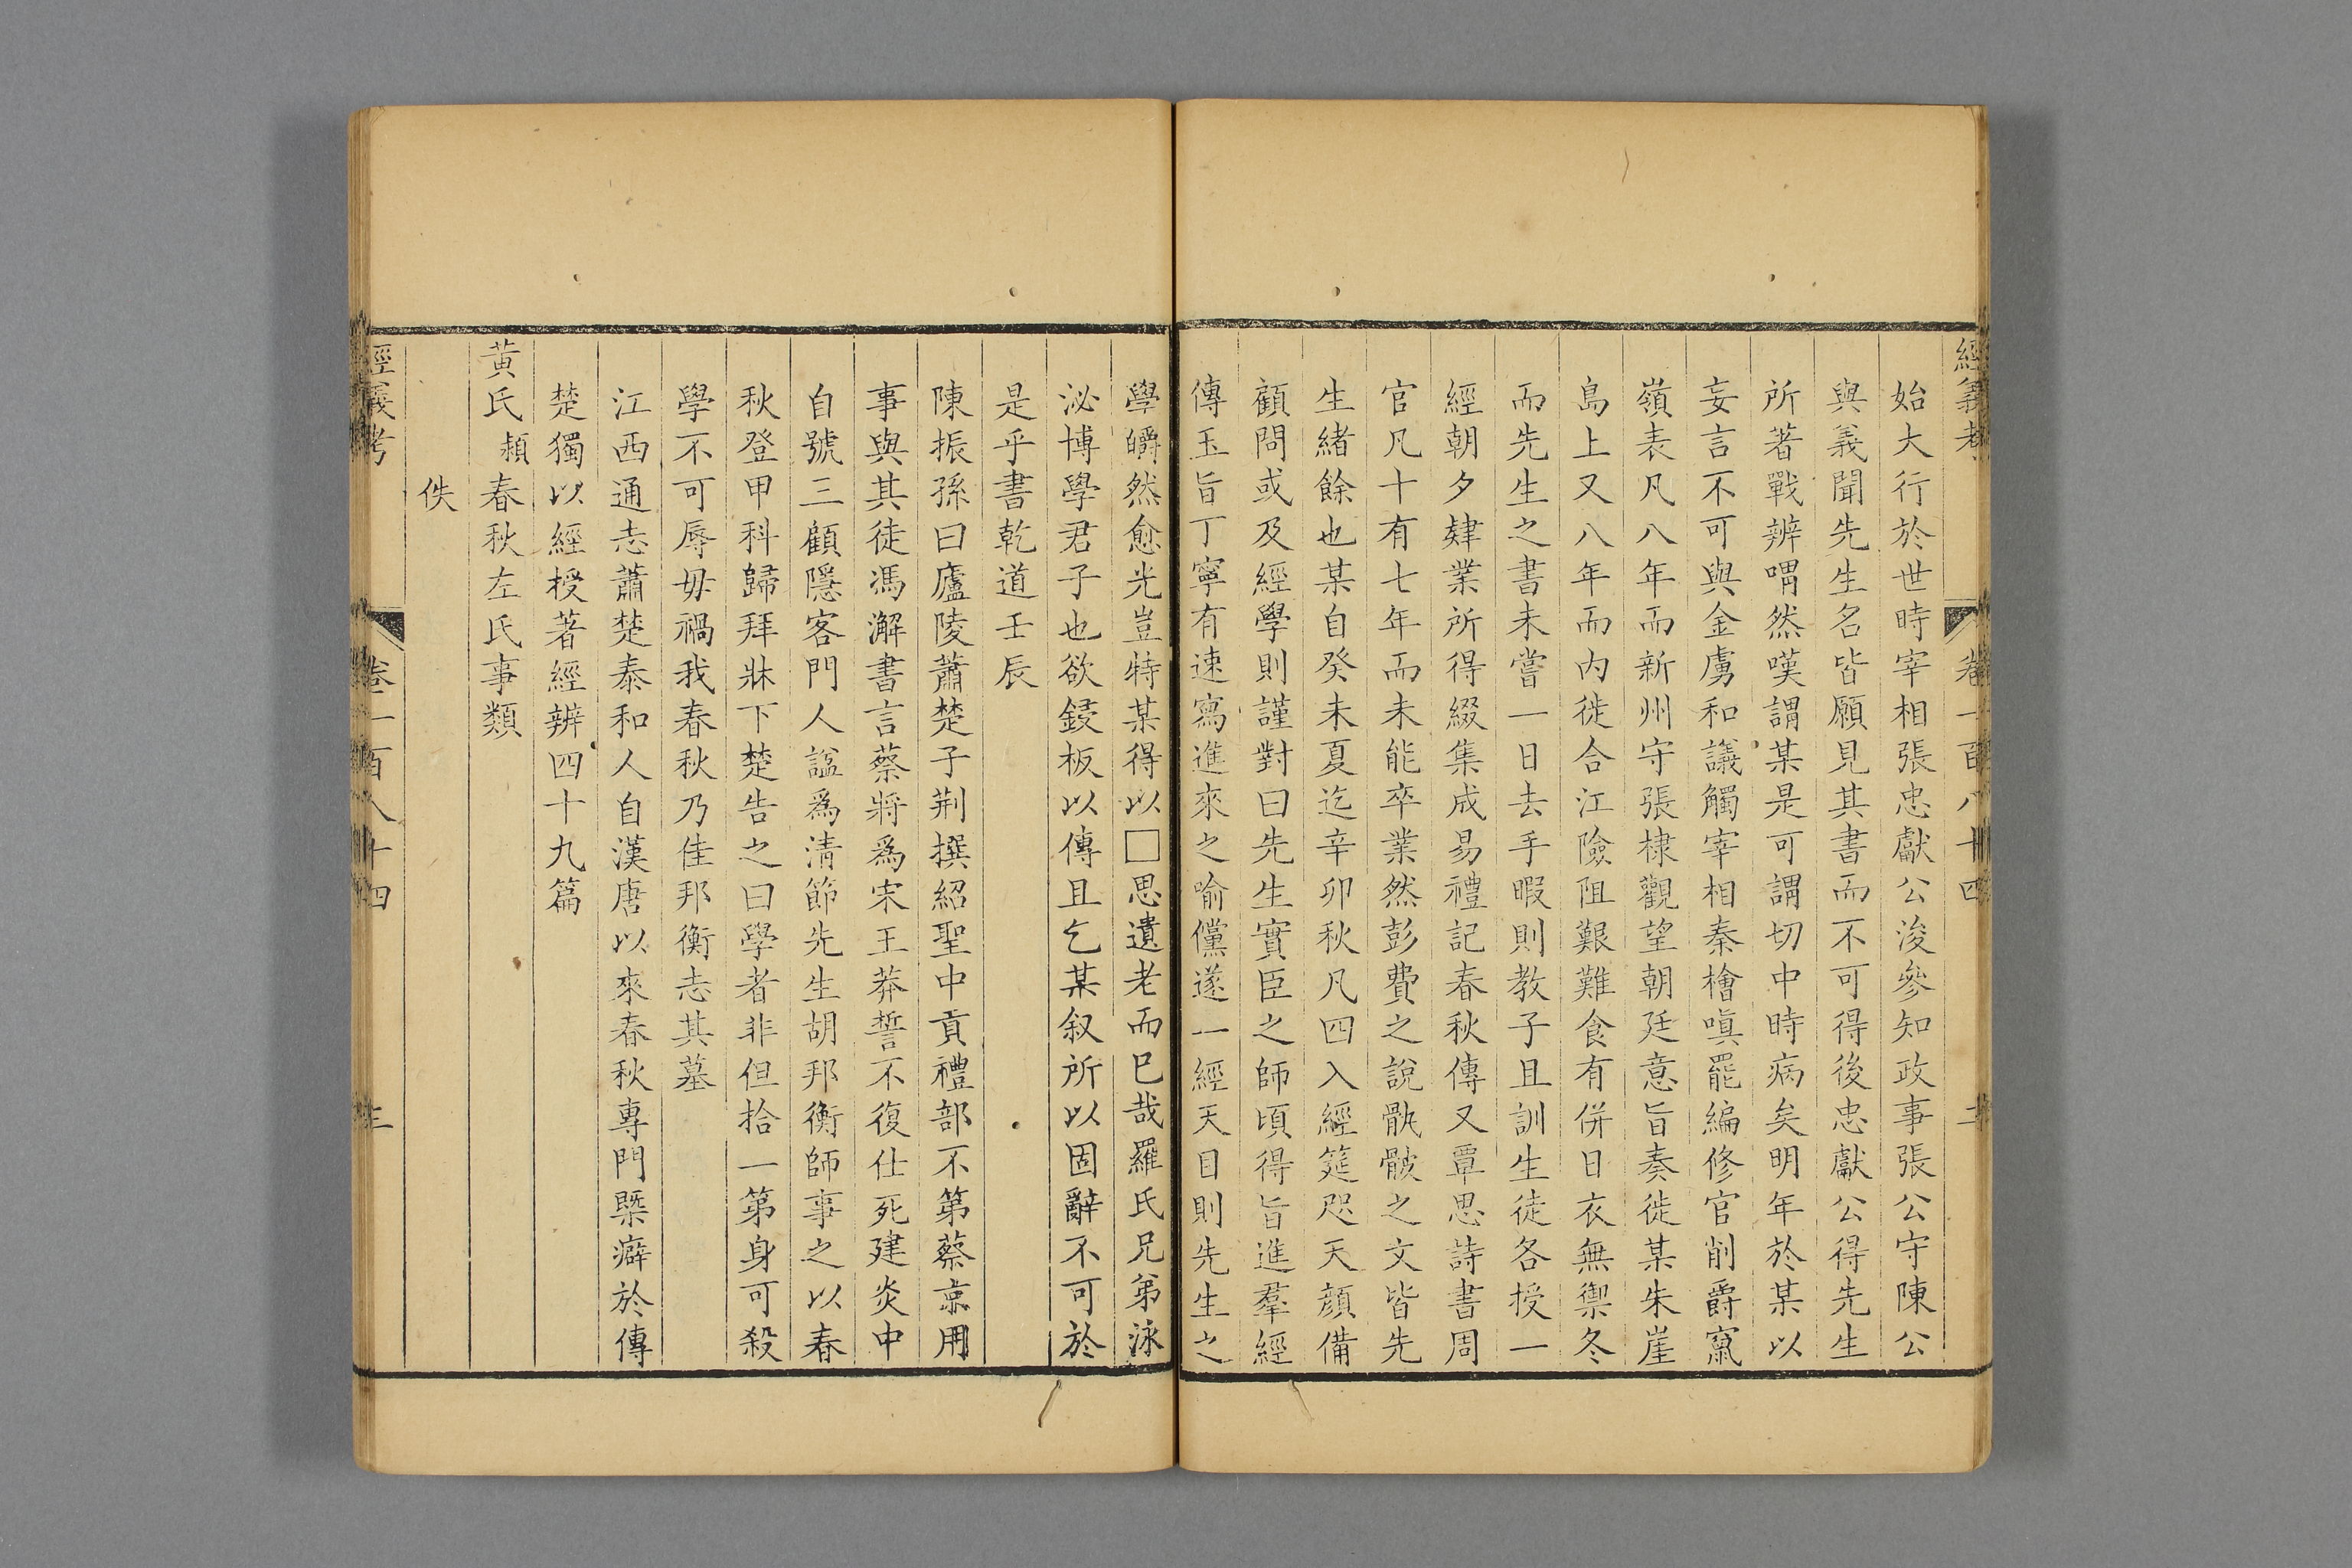 經義考 卷一百八十四 二
始大行於世時宰相張忠獻公浚參知政事張公守陳公
與義聞先生名皆願見其書而不可得後忠獻公得先生
所著戰辨喟然嘆謂某是可謂切中時病矣明年於某以
妄言不可與金虜和議觸宰相秦檜嗔罷編修官削爵竄
嶺表凡八年而新州守張棣觀望朝廷意旨奏徙某朱崖
島上又八年而內徙合江險阻艱難食有併日衣無禦冬
而先生之書未嘗一日去手暇則教子且訓生徒各授一
經朝夕肄業所得綴集成易禮記春秋傳又覃思詩書周
官凡十有七年而未能卒業然彭費之說骪骳之文皆先
生緒餘也某自癸未夏迄辛卯秋凡四入經筵咫天顏備
顧問或及經學則謹對曰先生實臣之師頃得旨進羣經
傳玉旨丁寧有速寫進來之喻儻遂一經天目則先生之
學皭然愈光豈特某得以□思遺老而已哉羅氏兄弟泳
泌博學君子也欲鋟板以傳且乞某叙所以固辭不可於
是乎書乾道壬辰
陳振孫曰廬陵蕭楚子荆撰紹聖中貢禮部不第蔡京用
事與其徒馮澥書言蔡將為宋王莽誓不復仕死建炎中
自號三顧隱客門人諡為清節先生胡邦衡師事之以春
秋登甲科歸拜牀下楚告之曰學者非但拾一第身可殺
學不可辱毋禍我春秋乃佳邦衡志其墓
江西通志蕭楚泰和人自漢唐以來春秋專門槩癖於傳
楚獨以經授著經辨四十九篇
黃氏穎春秋左氏事類
佚
經義考 卷一百八十四 三